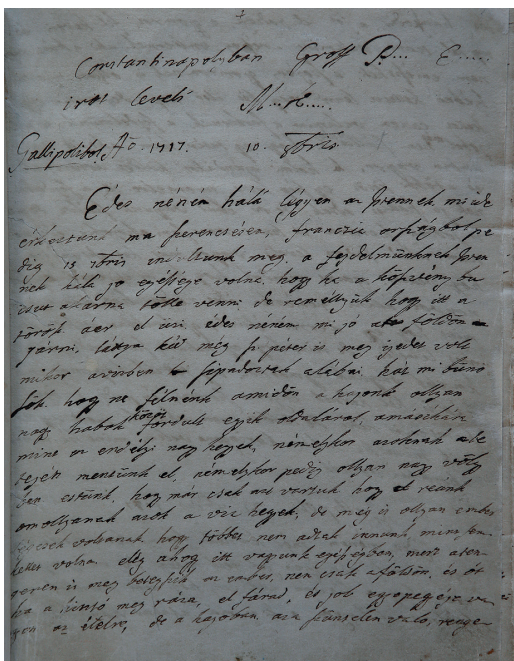 Constantinapolyban Groff P... E.....
irot leveli M...K....
Gallipolibol Ao. 1717. 10. 8bris
Édes néném hálá légyen az Istennek mi ide
érkeztünk ma szerencsésen, franczia országbol pe
dig 15 7bris indultunk meg, a fejedelmünknek Isten
nek hála jo egésége volna, hogy ha a köszvény bu
csut akarna tölle venni de reméllyük hogy itt a
török aer el üzi, édes néném mi jó a földön
járni, lattya kéd még sz péter is meg ijedet volt
mikor a vizben sipadoztak a lábai hát mi bünö
sök hogy ne félnénk amidön a hajonk ollyan
nagy habok között fordult egyik oldaláról a másikára
mint az erdélyi nagy hegyek, némelykor azoknak a te
tején mentünk el, némelykor pedig ollyan nagy völgy
ben estünk, hogy már csak azt vártuk hogy reánk
omollyanak azok a viz hegyek, de még is ollyan ember
ségesek voltanak, hogy többet nem adtak innunk, mint sem
kellet volna. elég a hogy itt vagyunk egéségben, mert a ten-
geren is meg betegszik az ember, nem csak a földön, és ót
ha a hintó meg rázza, el fárad, és job egyepegyje va-
gyon az ételre, de a hajoban az a szüntelen való, renge-